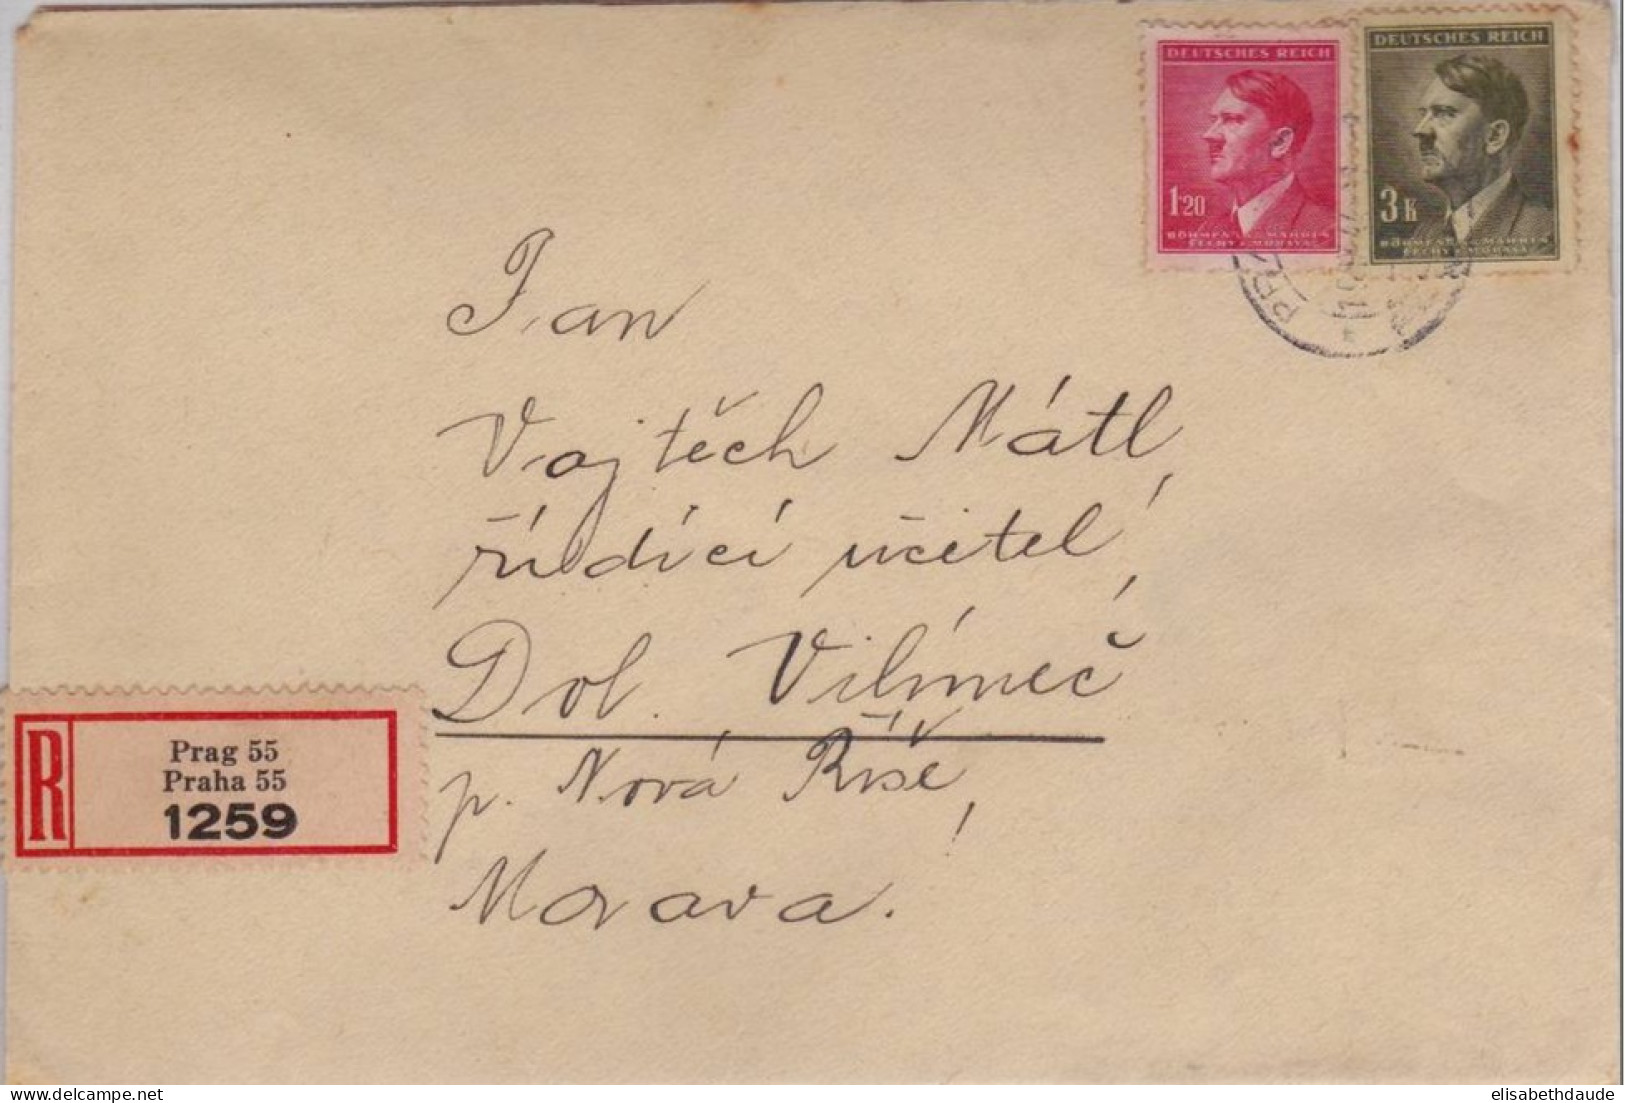 DEUTSCHES REICH
1'20
BÖHMEN U. MÄHREN
ČECHY A MORAVA
DEUTSCHES REICH
3 K
BÖHMEN U. MÄHREN
ČECHY A MORAVA
Pan
Vojtěch Mátl,
řídící učitel,
Dol. Vilímeč
p. Nová Říše,
Morava.
R
Prag 55
Praha 55
1259
www.delcampe.net
elisabethdaude